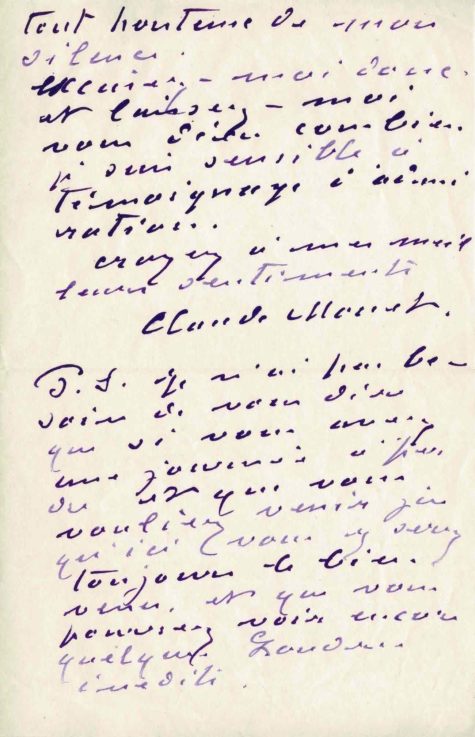 tout honteux de mon
silence.
Excusez-moi donc.
et laissez-moi
vous dire combien
je suis sensible à
témoignage d'admi
ration.
croyez à mes meil
leurs sentiments
Claude Monet.
P.S. je n'ai pas be-
soin de vous dire
que si vous avez
une journée à per
du et que vous
vouliez venir jus
qu'ici vous y serez
toujours le bien.
venu. et que vous
pourrez voir encore
quelques Londres
inédits.